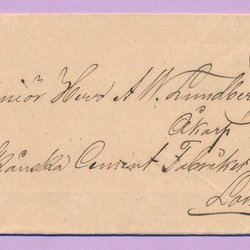 niör Herr A W. Lundber
Åkarp
kånska Cement Fabriket
Lom